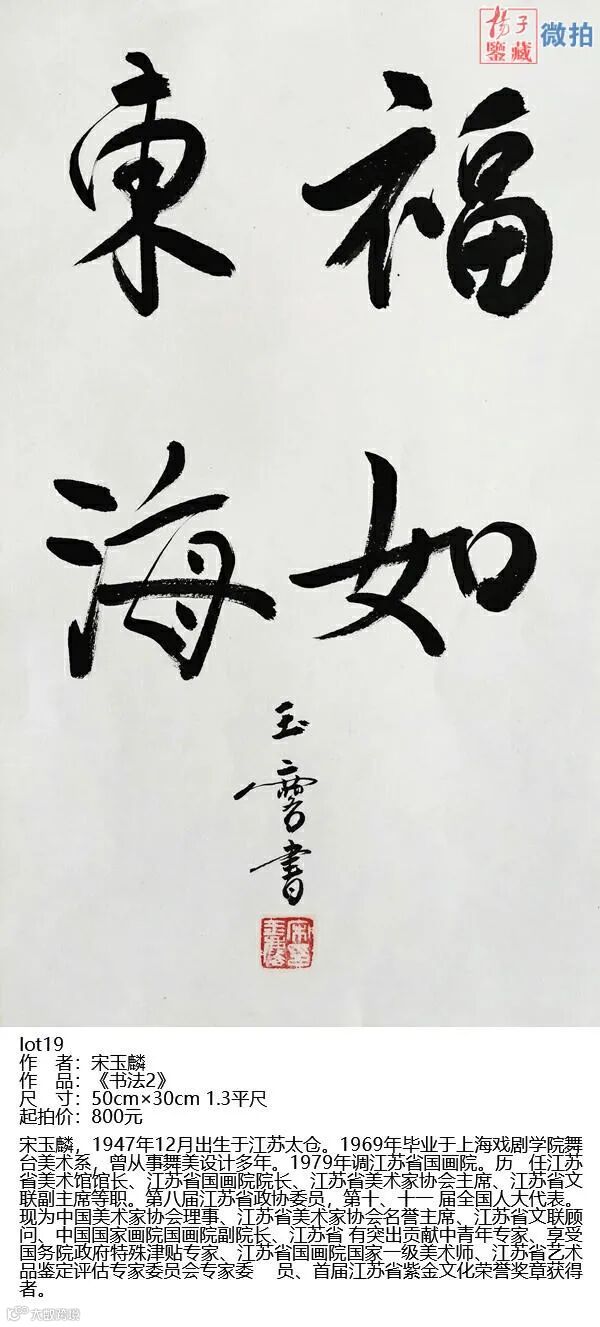 楊子
鑒藏
微拍
福如
東海
玉麐書
lot19
作 者：宋玉麟
作 品：《书法2》
尺 寸：50cm×30cm 1.3平尺
起拍价：800元
宋玉麟，1947年12月出生于江苏太仓。1969年毕业于上海戏剧学院舞
台美术系，曾从事舞美设计多年。1979年调江苏省国画院。历 任江苏
省美术馆馆长、江苏省国画院院长、江苏省美术家协会主席、江苏省文
联副主席等职。第八届江苏省政协委员，第十、十一 届全国人大代表。
现为中国美术家协会理事、江苏省美术家协会名誉主席、江苏省文联顾
问、中国国家画院国画院副院长、江苏省 有突出贡献中青年专家、享受
国务院政府特殊津贴专家、江苏省国画院国家一级美术师、江苏省艺术
品鉴定评估专家委员会专家委 员、首届江苏省紫金文化荣誉奖章获得
者。
大数跨境